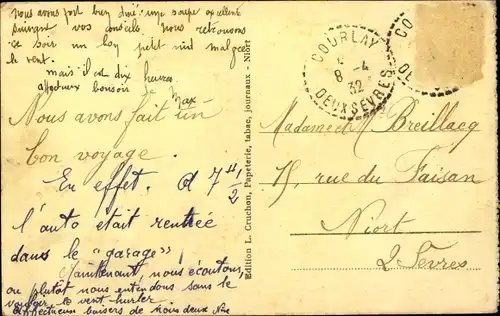 nous avons fort bien diné : une soupe excellente
suivant vos conseils nous retrouvons
ce soir un bon petit nid malgré
le vent.
mais il est dix heures.
affectueux bonsoir de
Max
Nous avons fait un
bon voyage.
En effet. A 7 H 1/2
l'auto était rentrée
dans le "garage"!
Maintenant, nous écoutons
ou plutôt nous entendons sans le
vouloir le vent hurler.
Affectueux baisers de nous deux
Edition L. Cruchon, Papeterie, tabac, journaux - Niort
COURLAY
8 - 4
32
DEUX SÈVRES
CO
DE
Madame et M. Breillacq
15, rue du Faisan
Niort
2 Sèvres